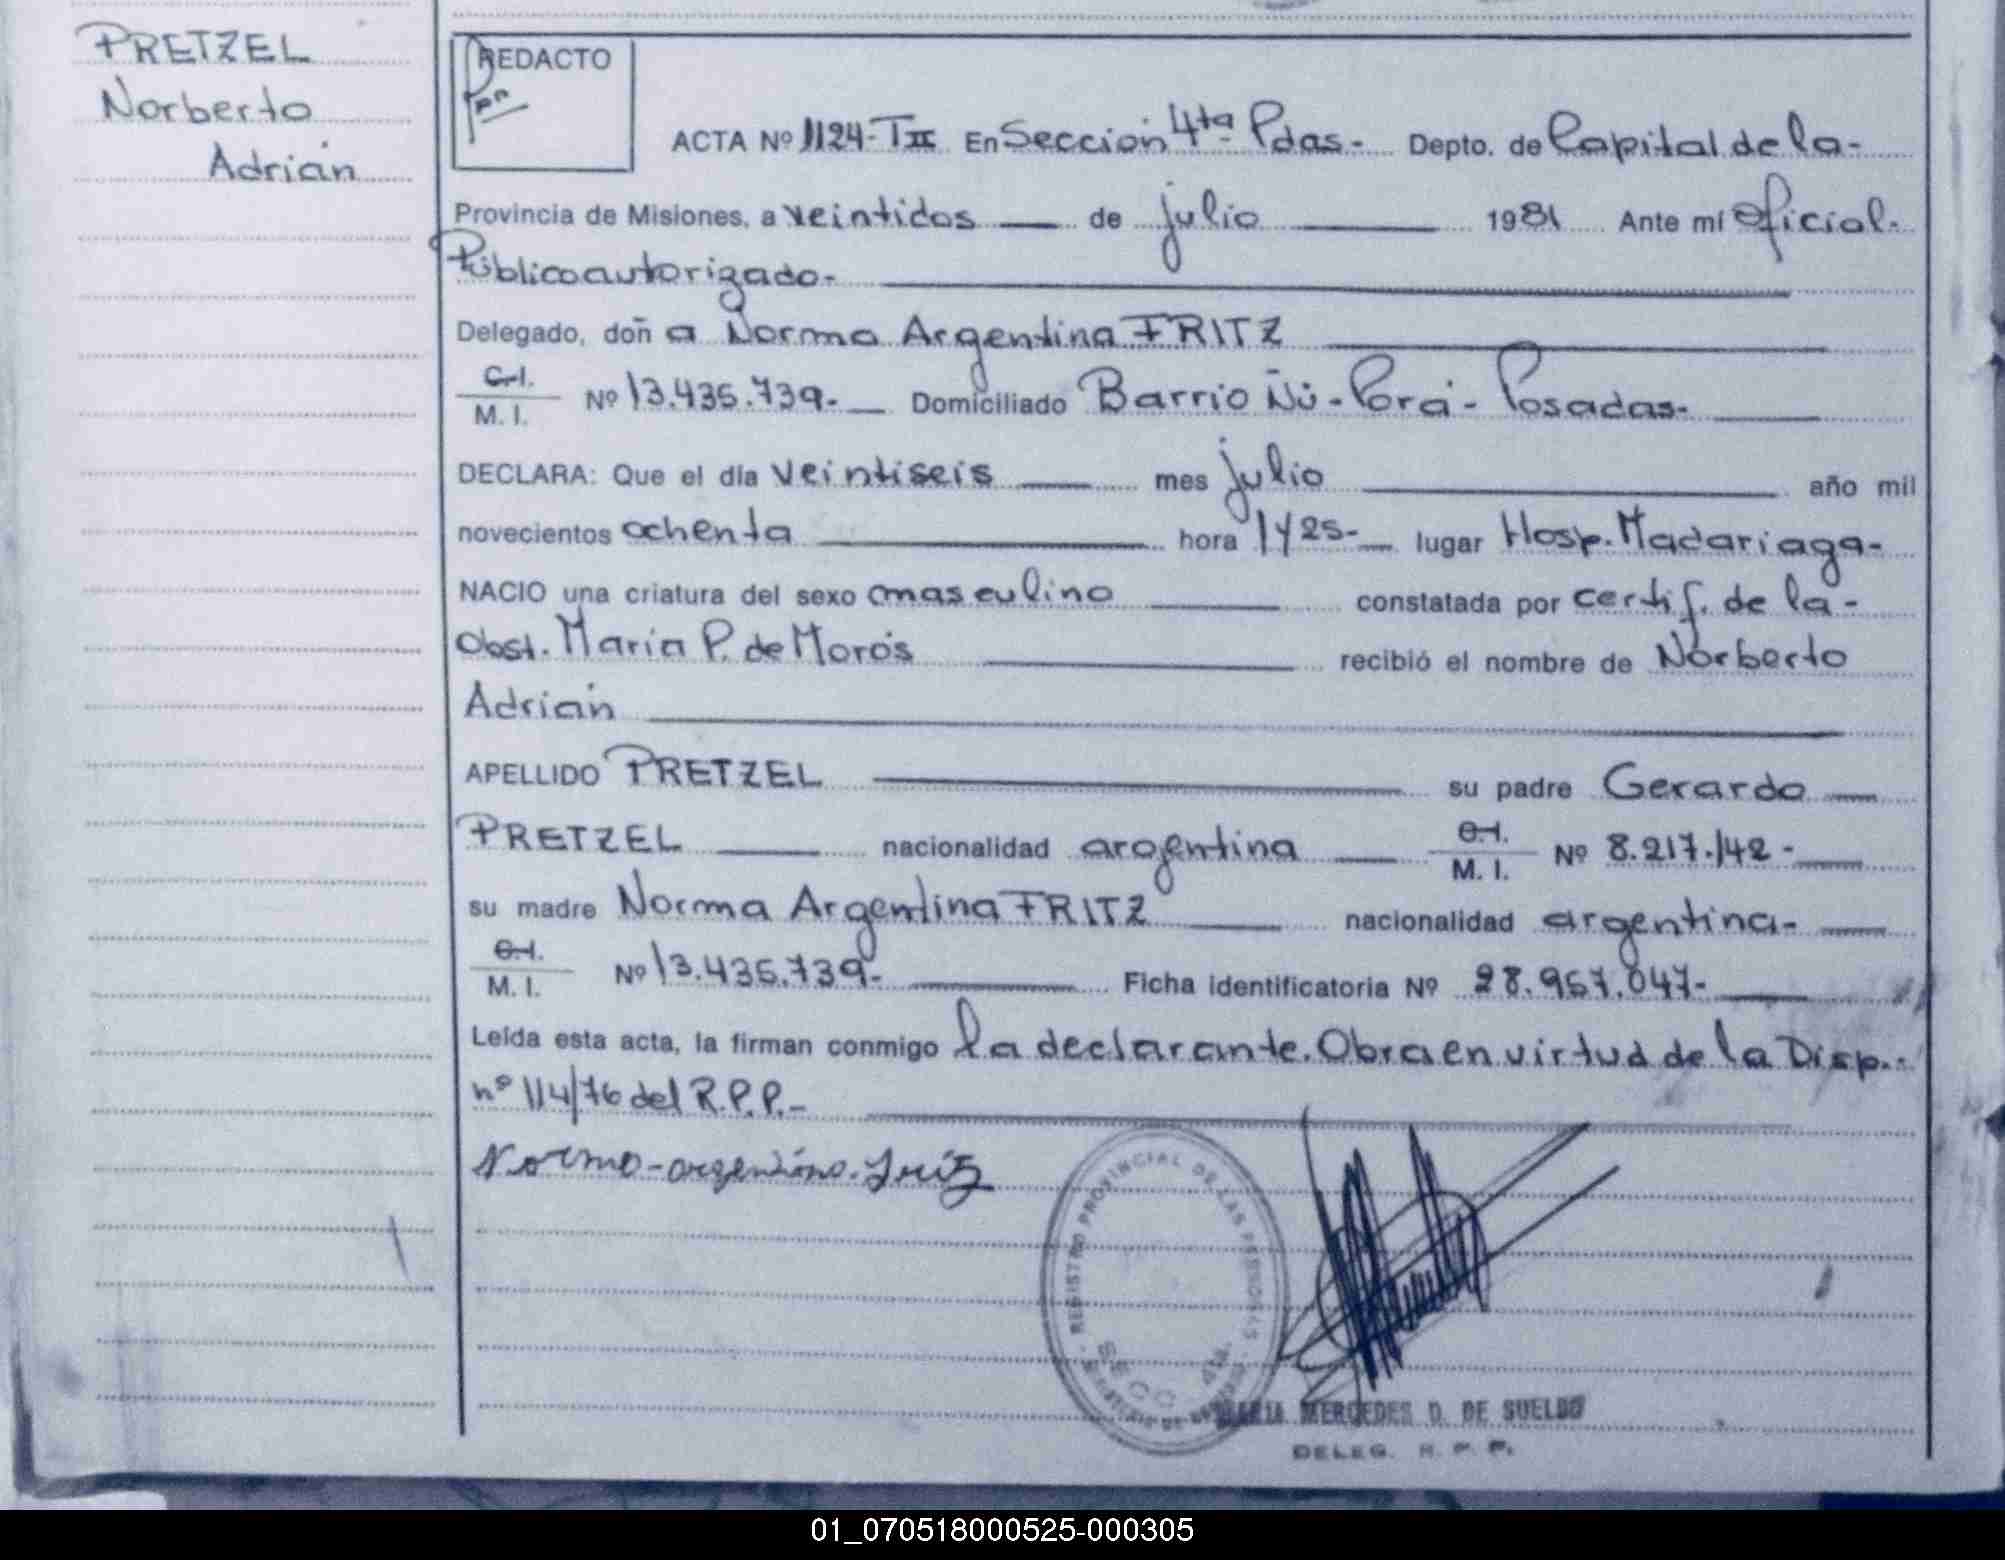 PRETZEL
Norberto
Adrián
REDACTO
ACTA Nº 1124-TII En Sección 4ta Pdas- Depto. de Capital de la-
Provincia de Misiones, a veintidos de julio 1981 Ante mí oficial-
Público autorizado-
Delegado, doñ a Norma Argentina FRITZ
C.I.
M. I. Nº 13.435.739- Domiciliado Barrio Ñú-Porá-Posadas-
DECLARA: Que el día veintiseis mes julio año mil
novecientos ochenta hora 1425- lugar Hosp. Madariaga-
NACIO una criatura del sexo masculino constatada por certif. de la-
Obst. María P. de Morós recibió el nombre de Norberto
Adrián
APELLIDO PRETZEL su padre Gerardo
PRETZEL nacionalidad argentina C.I. M. I. Nº 8.217.142-
su madre Norma Argentina FRITZ nacionalidad argentina-
C.I.
M. I. Nº 13.435.739- Ficha identificatoria Nº 28.957.047-
Leída esta acta, la firman conmigo la declarante. Obra en virtud de la Disp.-
nº 114/76 del R.P.P.-
Norma-argentina. Fritz
REGISTRO PROVINCIAL DE LAS PERSONAS
SECC. 4ta.
MARIA MERCEDES D. DE SUELDO
DELEG. R. P. P.
01_070518000525-000305